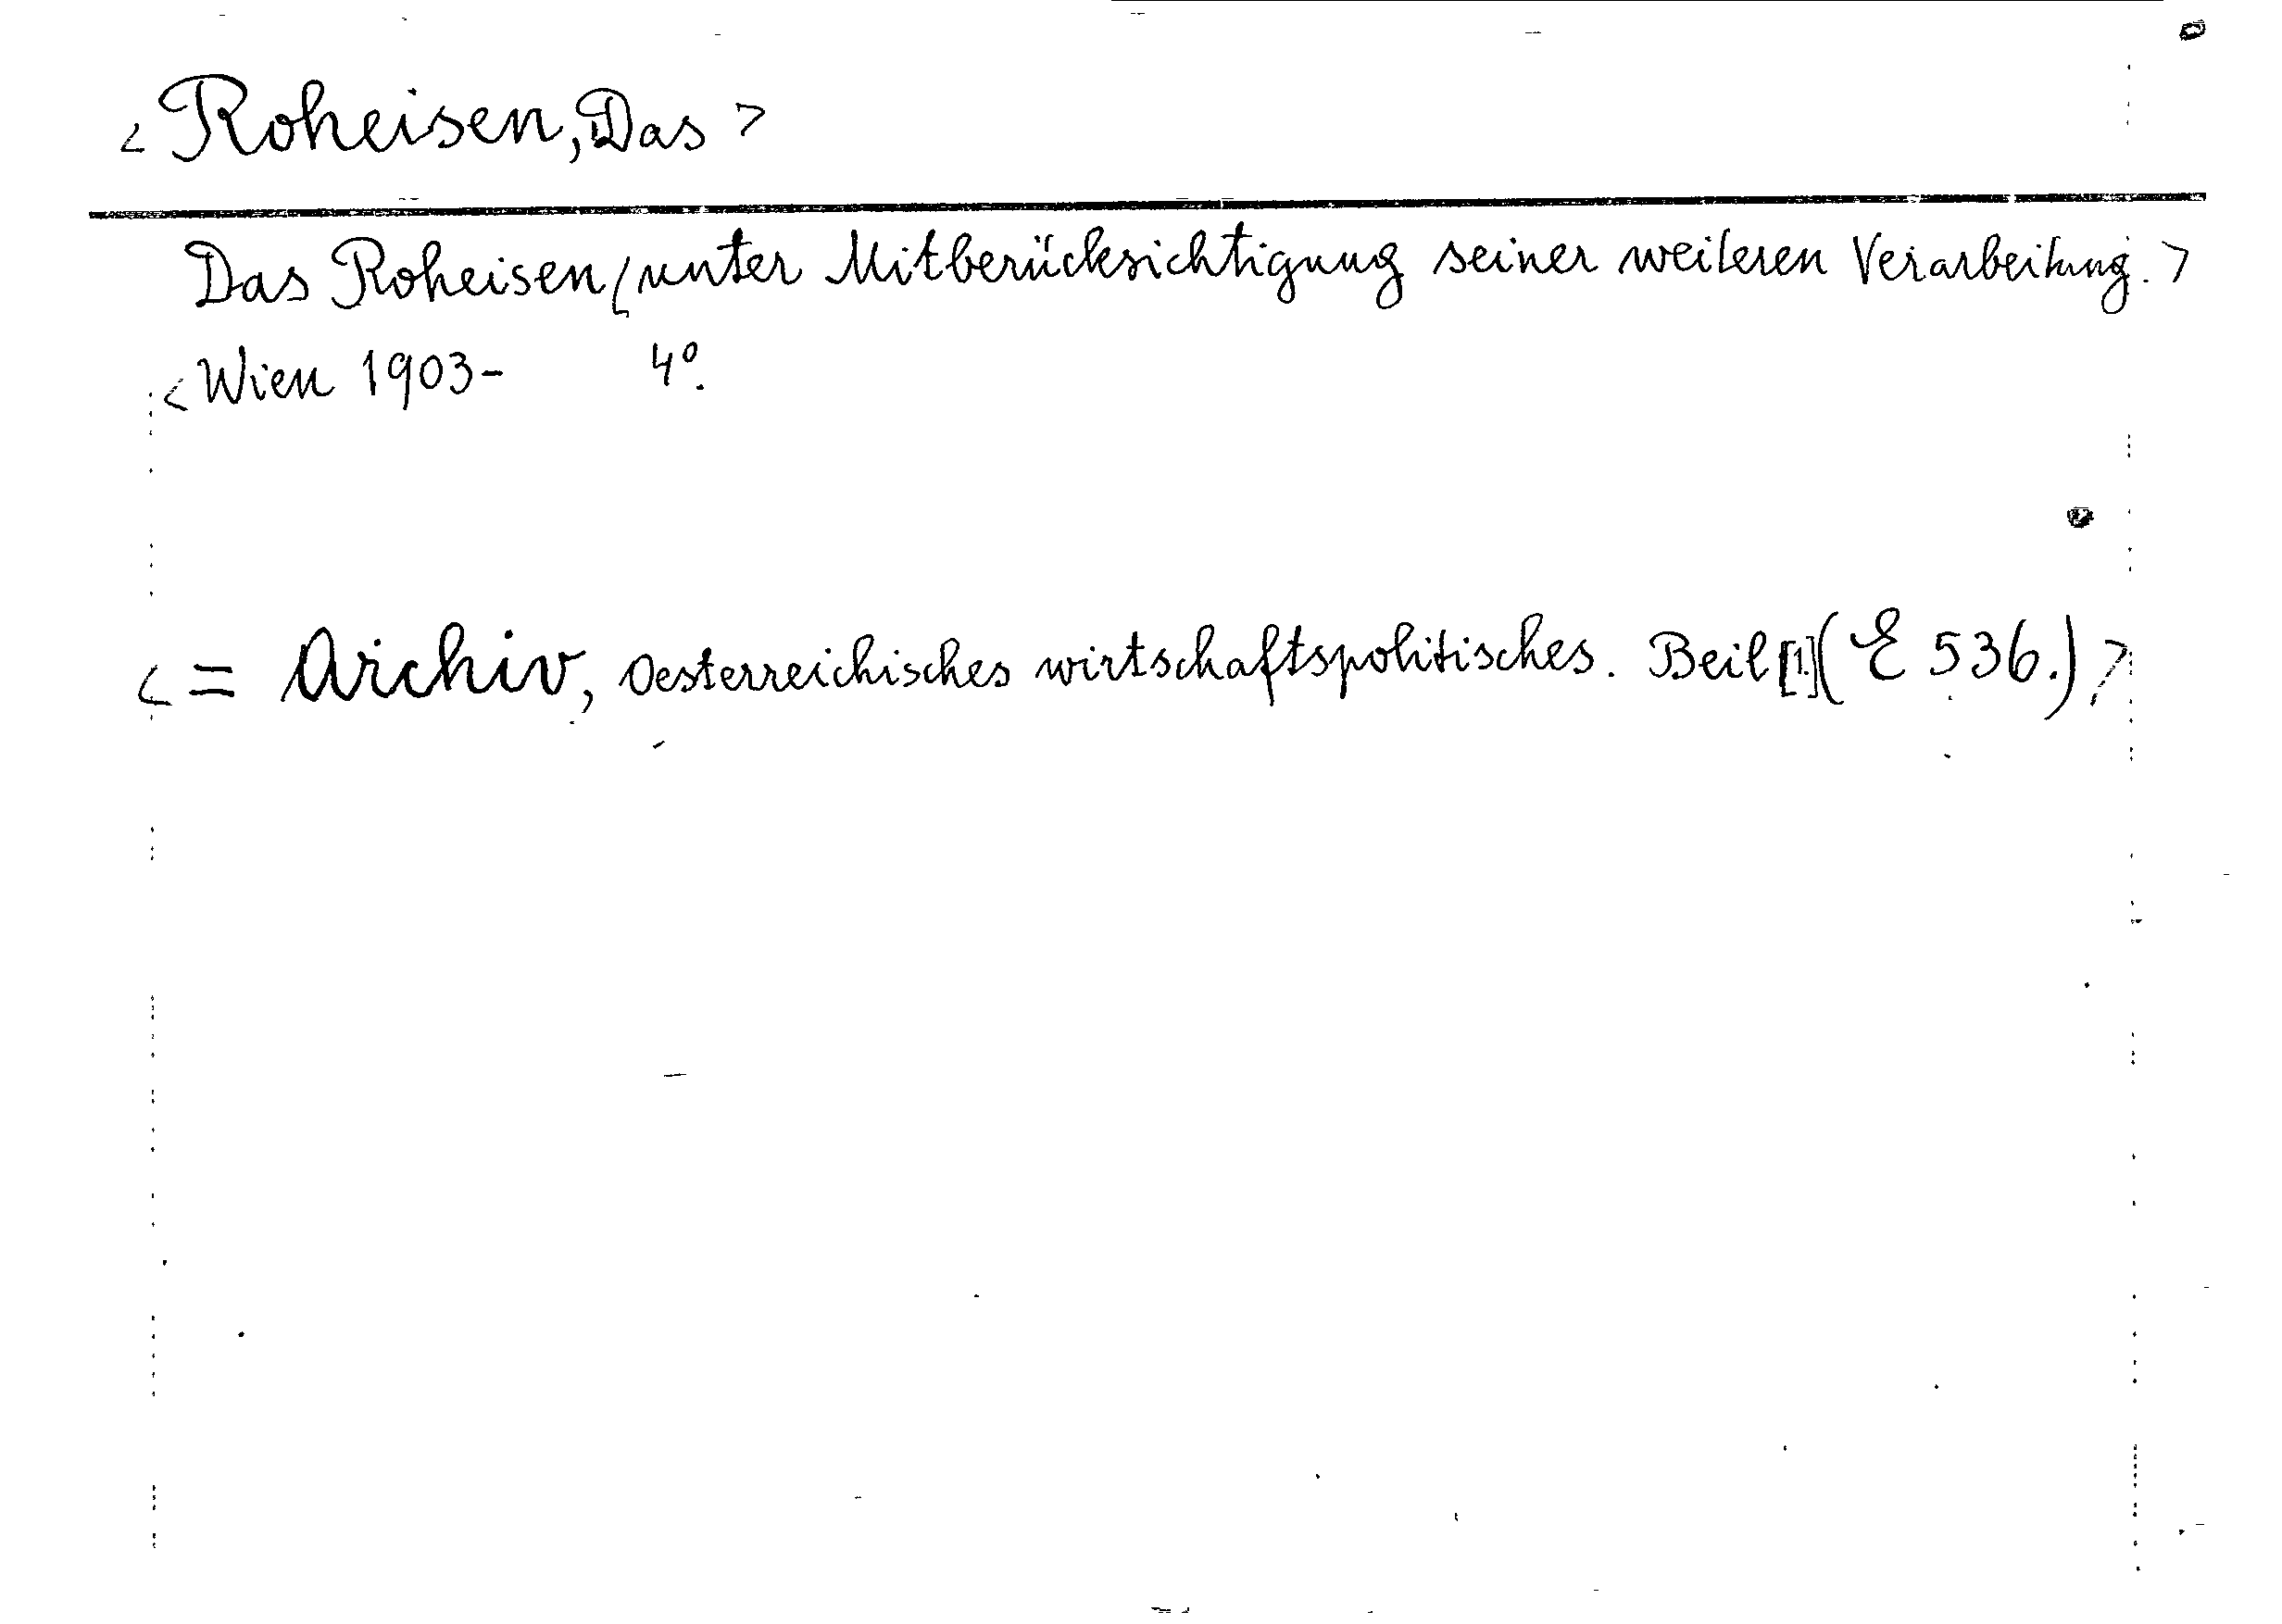 < Roheisen, Das >
Das Roheisen (unter Mitberücksichtigung seiner weiteren Verarbeitung. >
< Wien 1903- 4°.
< = Archiv, Oesterreichisches wirtschaftspolitisches. Beil [1] (E 536.) >